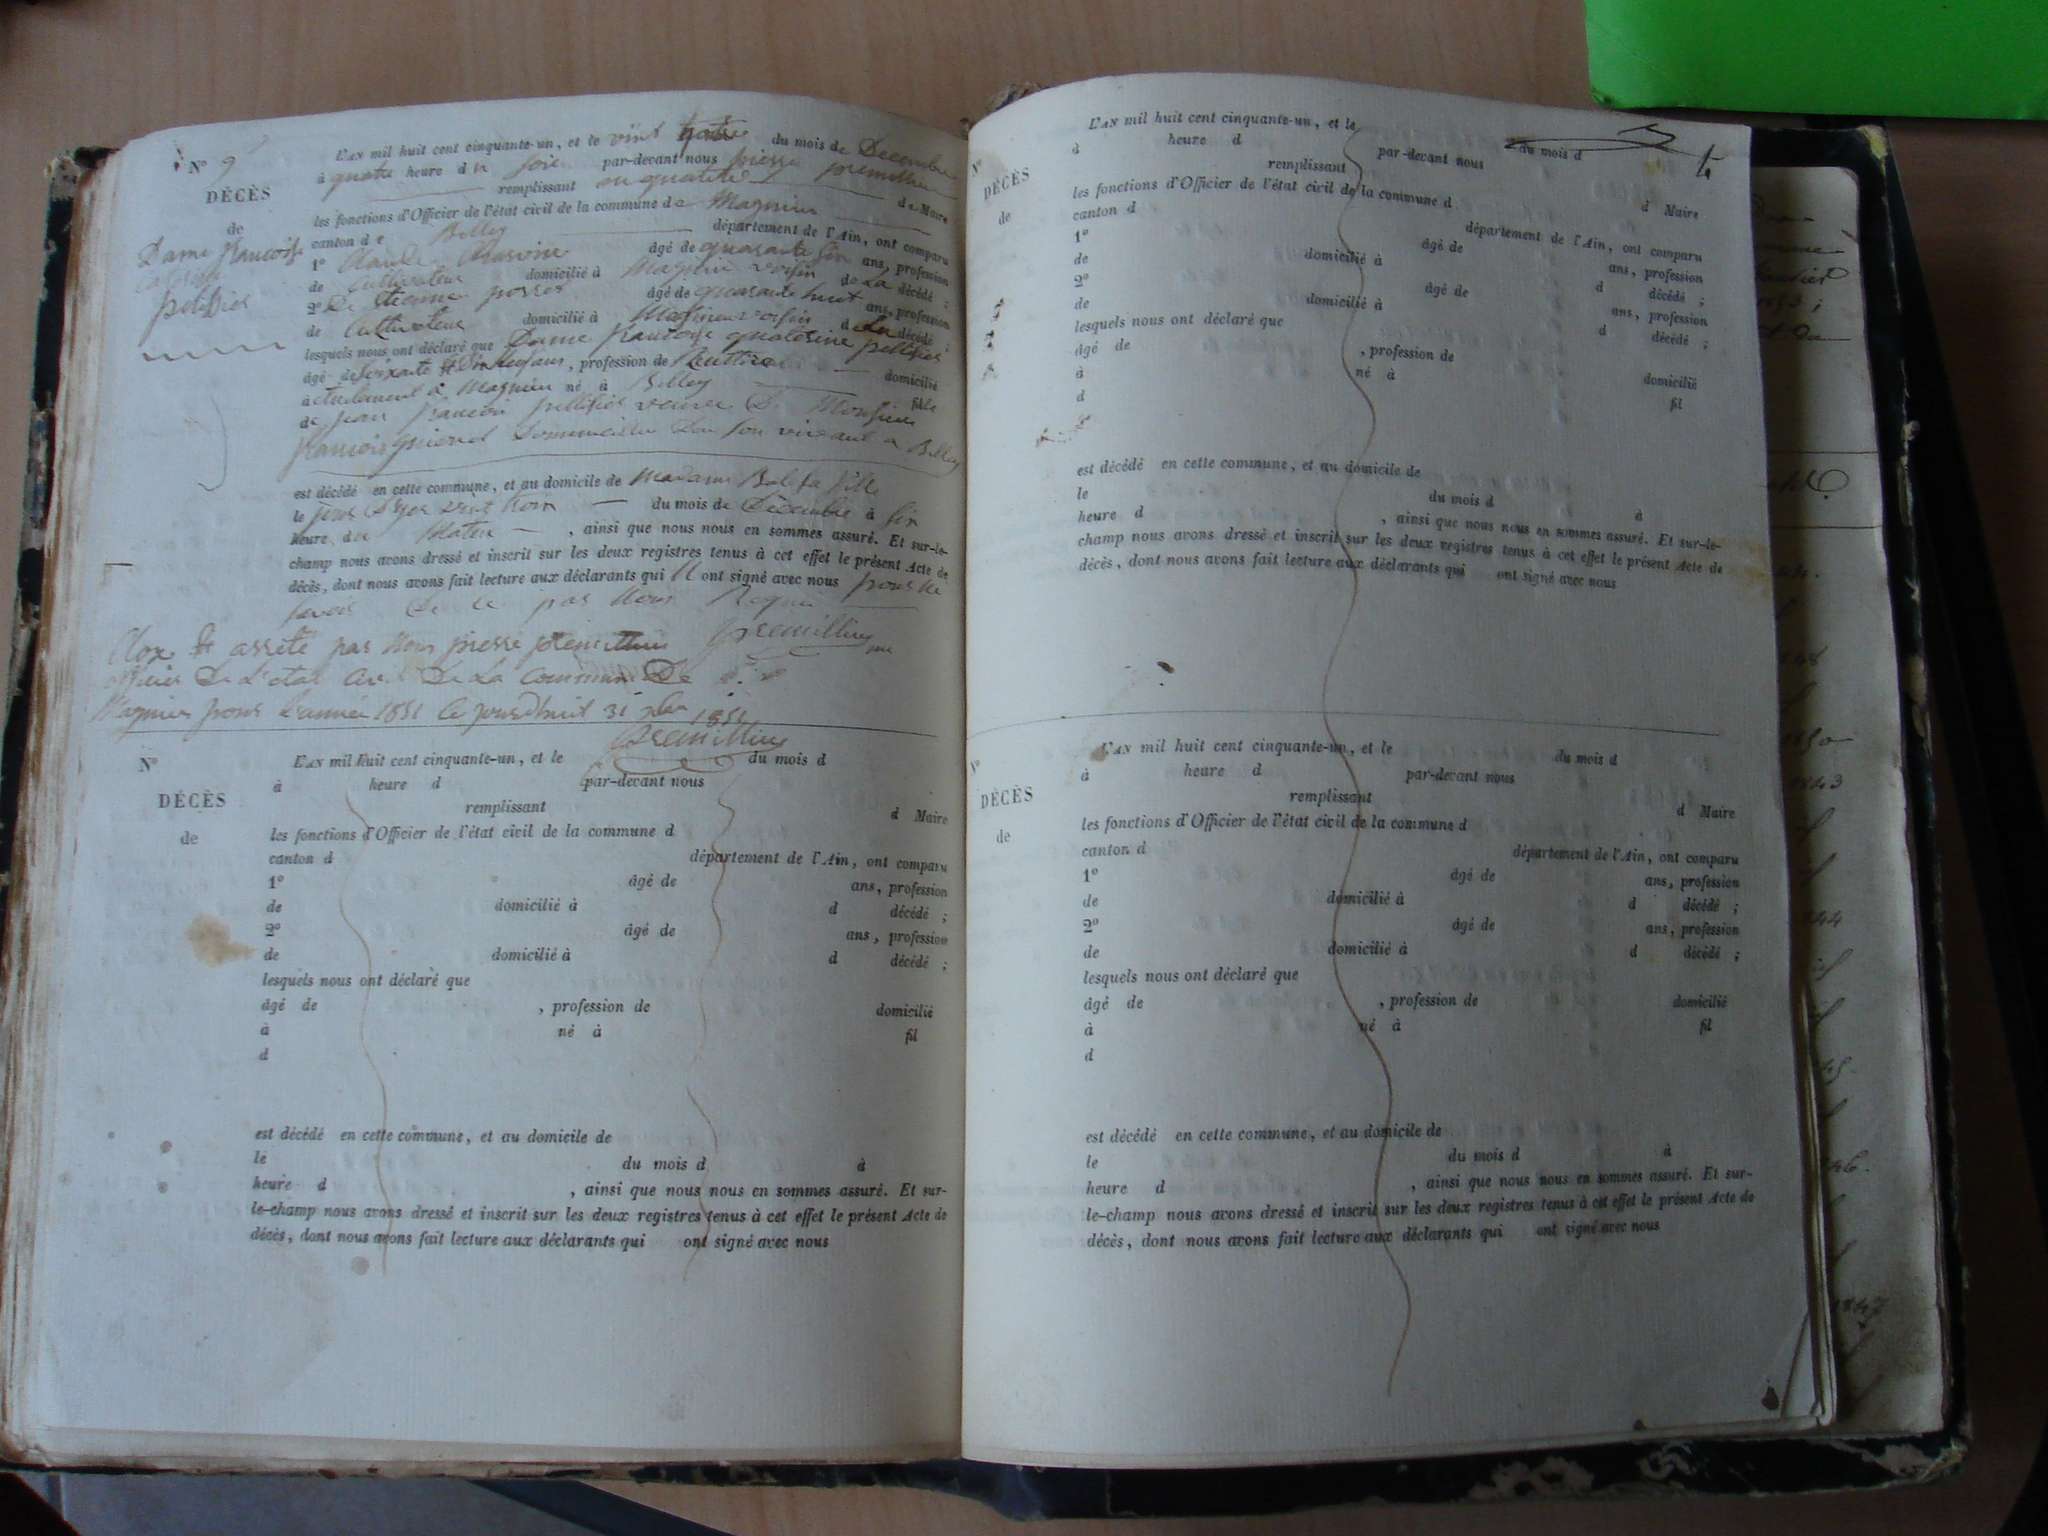 N° 9
DÉCÈS
de
Dame francoise
pellifier
L'AN mil huit cent cinquante-un, et le vint quatre du mois de Decembre
à quatre heure du soir par-devant nous pierre premillieu
remplissant en qualité de Maire
les fonctions d'Officier de l'état civil de la commune de Magnieu
canton de Belley département de l'Ain, ont comparu
1° Claude âgé de quarante six ans, profession
de cultivateur domicilié à Magnieu voisin de La décédé ;
2° De Etienne âgé de quarante huit ans, profession
de Cultivateur domicilié à Magnieu voisin de La décédé ;
lesquels nous ont déclaré que Dame francoise pellifier
âgé de soixante ans, profession de Rentière domicilié
actuelament à Magnieu né à Belley fille
de jean francois pellifier veuve de Monsieur
francois De son vivant a Belley
est décédé en cette commune, et au domicile de Madame fille
le jour D'yer vint trois du mois de Décembre à six
heure du Maten, ainsi que nous nous en sommes assuré. Et sur-le-
champ nous avons dressé et inscrit sur les deux registres tenus à cet effet le présent Acte de
décès, dont nous avons fait lecture aux déclarants qui N ont signé avec nous pour ne
savoir De ce par Nous Requis
Clos et arrété par Nous pierre premillieu Premillieu
officier De L'état Civil De La Commune De
Magnieu pour L'année 1851 Ce jourdhuit 31 xbre 1851
Premillieu
N°
DÉCÈS
de
L'AN mil huit cent cinquante-un, et le du mois d
à heure d par-devant nous
remplissant d Maire
les fonctions d'Officier de l'état civil de la commune d
canton d département de l'Ain, ont comparu
1° âgé de ans, profession
de domicilié à d décédé ;
2° âgé de ans, profession
de domicilié à d décédé ;
lesquels nous ont déclaré que
âgé de , profession de domicilié
à né à fil
d
est décédé en cette commune, et au domicile de
le du mois d à
heure d , ainsi que nous nous en sommes assuré. Et sur-
le-champ nous avons dressé et inscrit sur les deux registres tenus à cet effet le présent Acte de
décès, dont nous avons fait lecture aux déclarants qui ont signé avec nous
N°
DÉCÈS
de
L'AN mil huit cent cinquante-un, et le du mois d
à heure d par-devant nous
remplissant d Maire
les fonctions d'Officier de l'état civil de la commune d
canton d département de l'Ain, ont comparu
1° âgé de ans, profession
de domicilié à d décédé ;
2° âgé de ans, profession
de domicilié à d décédé ;
lesquels nous ont déclaré que
âgé de , profession de domicilié
à né à fil
d
est décédé en cette commune, et au domicile de
le du mois d à
heure d , ainsi que nous nous en sommes assuré. Et sur-le-
champ nous avons dressé et inscrit sur les deux registres tenus à cet effet le présent Acte de
décès, dont nous avons fait lecture aux déclarants qui ont signé avec nous
N°
DÉCÈS
de
L'AN mil huit cent cinquante-un, et le du mois d
à heure d par-devant nous
remplissant d Maire
les fonctions d'Officier de l'état civil de la commune d
canton d département de l'Ain, ont comparu
1° âgé de ans, profession
de domicilié à d décédé ;
2° âgé de ans, profession
de domicilié à d décédé ;
lesquels nous ont déclaré que
âgé de , profession de domicilié
à né à fil
d
est décédé en cette commune, et au domicile de
le du mois d à
heure d , ainsi que nous nous en sommes assuré. Et sur-
le-champ nous avons dressé et inscrit sur les deux registres tenus à cet effet le présent Acte de
décès, dont nous avons fait lecture aux déclarants qui ont signé avec nous